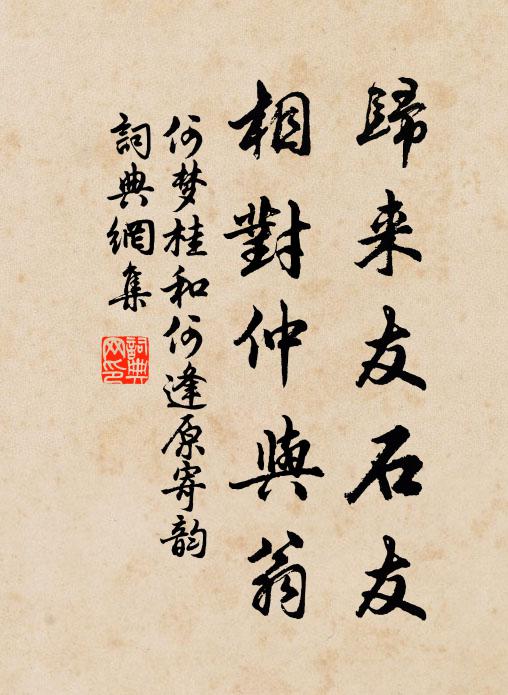 歸来友石友
相對仲與翁
何梦桂和何逢原寄韵
詞典網集
詞典網印